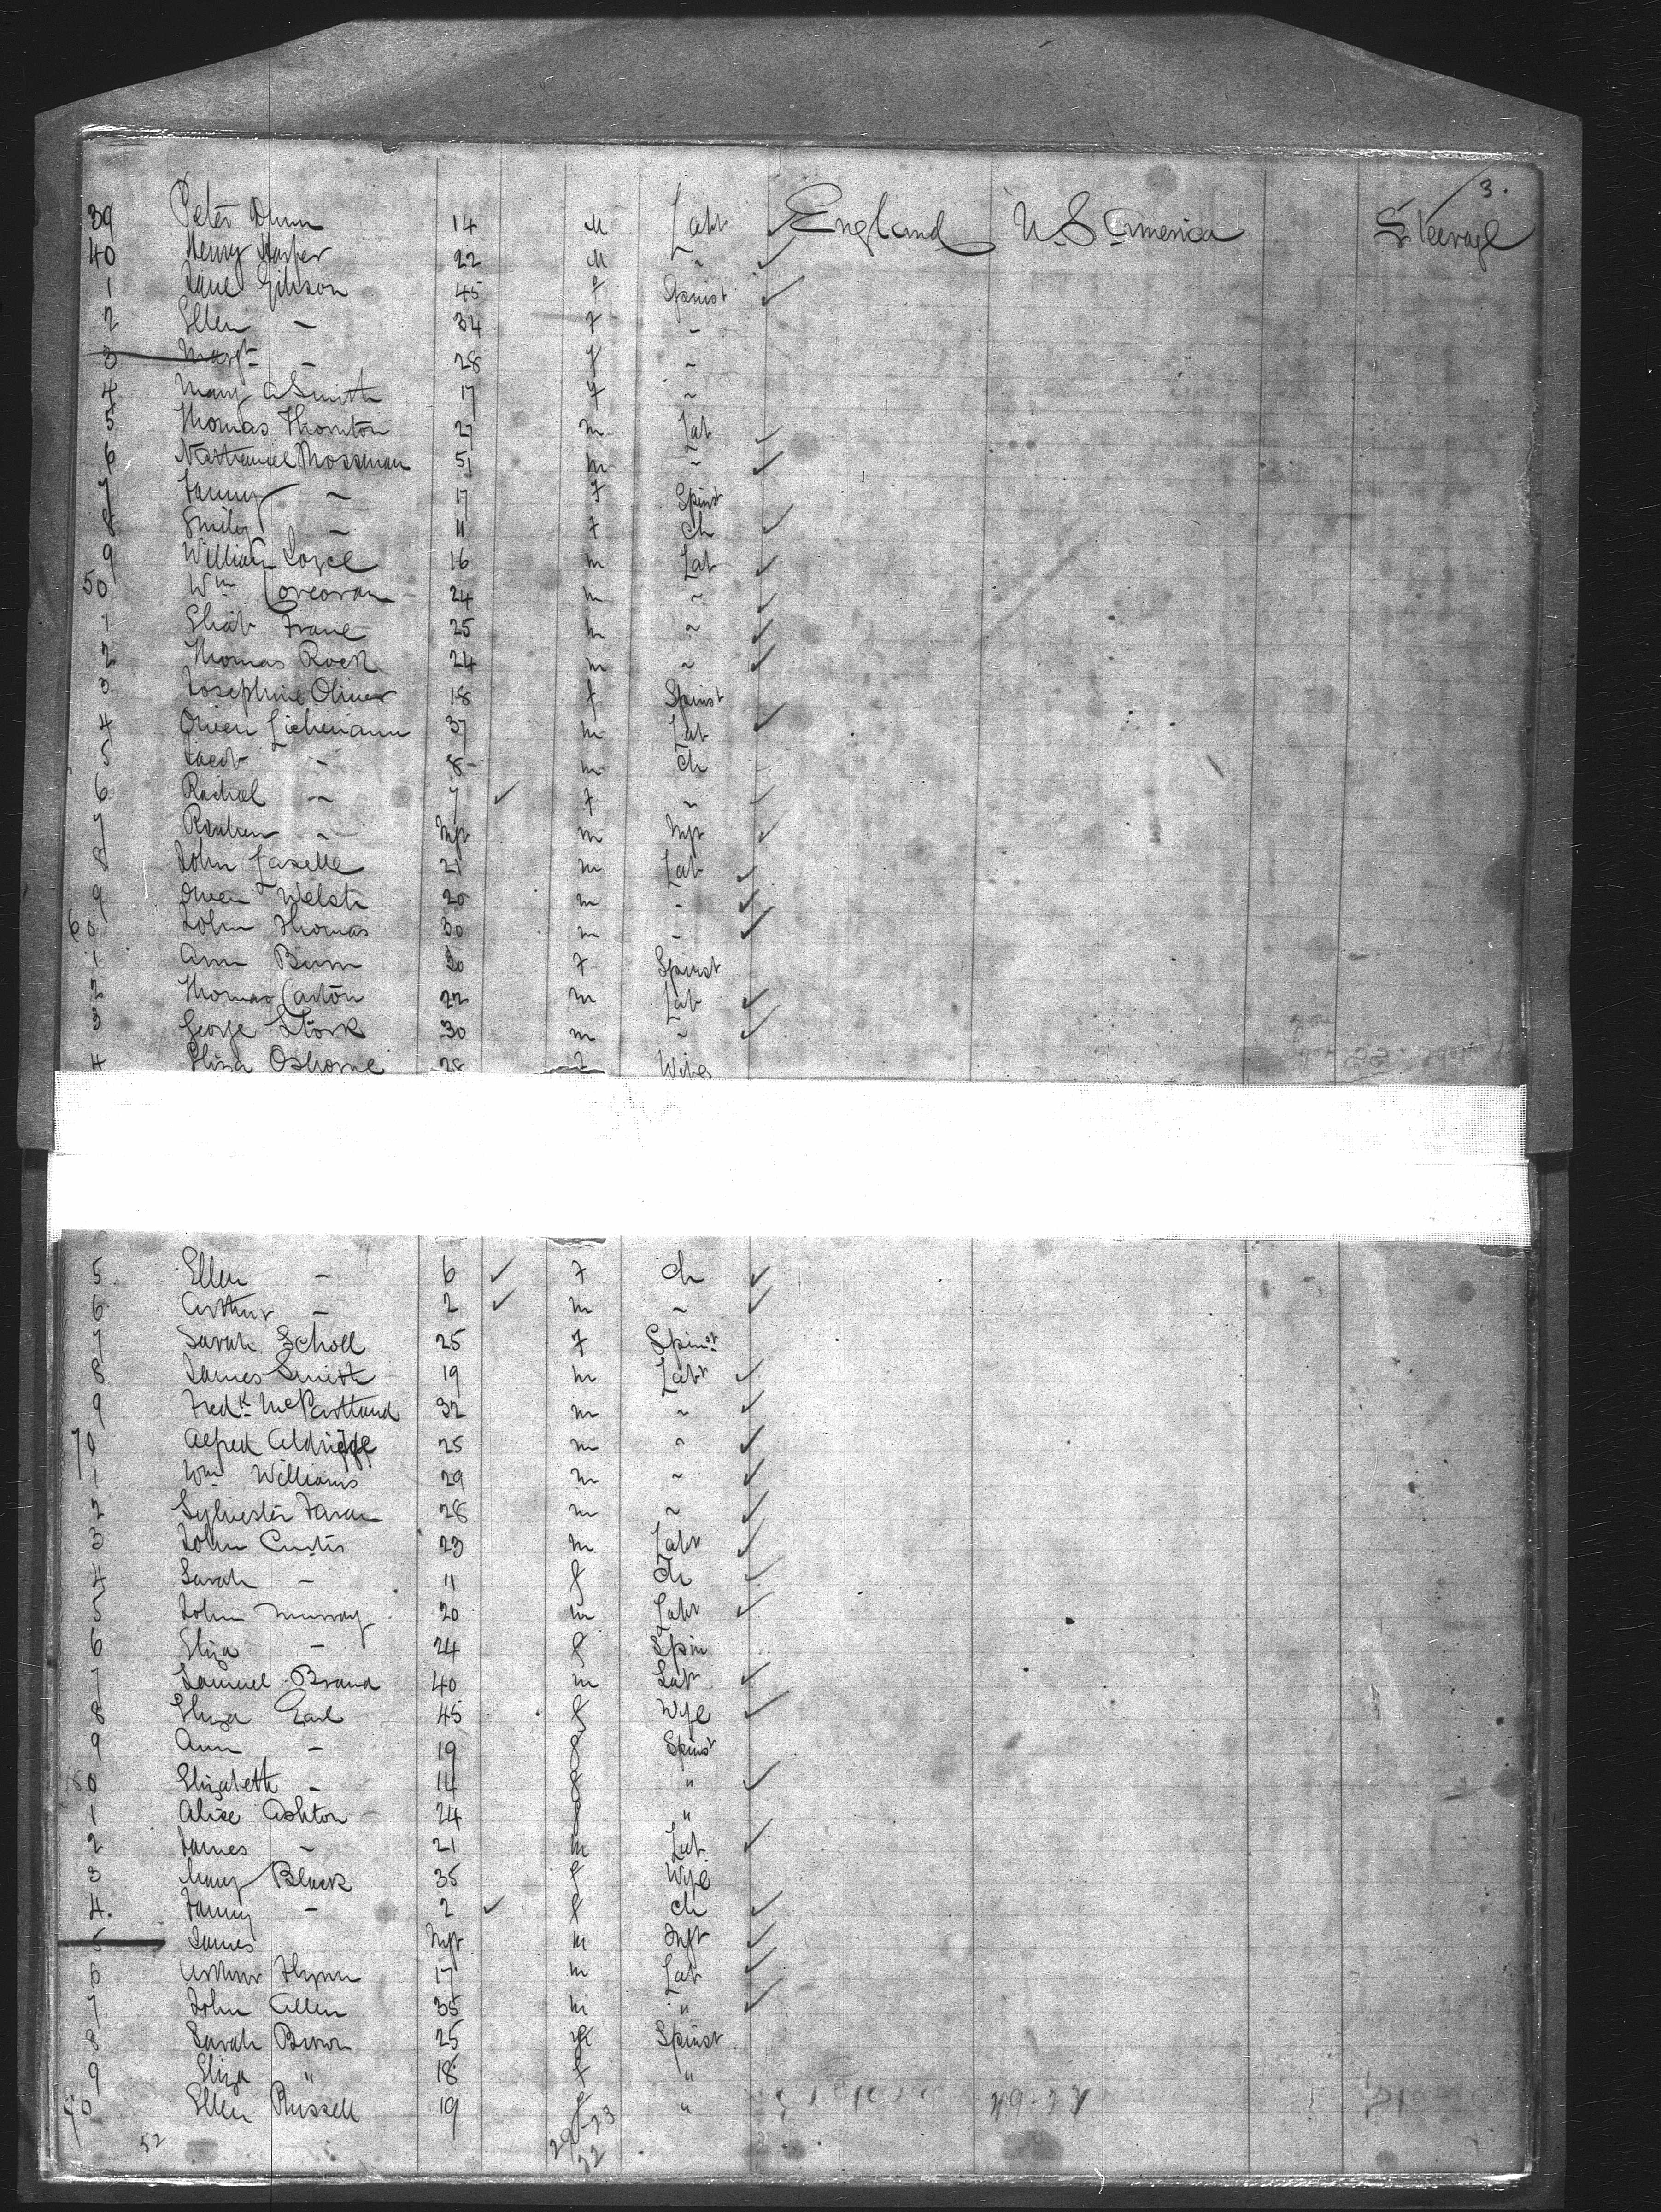 3.
39 Peter Dunn 14 M Labr ✓ England U.S. America Steerage
40 Henry Harper 22 M " ✓
1 Jane Gibson 45 f Spinst ✓
2 Ellen - 34 f "
3 Margt - 28 f "
4 Mary A Smith 17 f "
5 Thomas Thornton 27 m Lab ✓
6 Nathaniel Mossman 51 m " ✓
7 Fanny - 17 f Spinst
8 Emily - 11 f Ch ✓
9 William Loyce 16 m Lab ✓
50 Wm Corcoran 24 m " ✓
1 25 m " ✓
2 Thomas Rock 24 m " ✓
3 Josephine Oliver 18 f Spinst
4 Owen 37 m Lab ✓
5 Jacob - 8 m ch
6 Rachael - 7 ✓ f " ✓
7 Reuben - Inft m Inft ✓
8 John 21 m Lab ✓
9 Owen Welsh 20 m " ✓
60 John Thomas 30 m " ✓
1 Ann 30 f Spinst
2 Thomas Caston 22 m Lab ✓
3 George Stork 30 m " ✓
4 Eliza Osborne 28 f Wife
5 Ellen - 6 ✓ f Ch ✓
6 Arthur - 2 ✓ m " ✓
7 Sarah Scholl 25 f Spinst
8 James Smith 19 m Labr ✓
9 Fredk McPartland 32 m " ✓
70 Alfred Aldridge 25 m " ✓
1 Wm Williams 29 m " ✓
2 Sylvester Faran 28 m " ✓
3 John Curtis 23 m Labr ✓
4 Sarah - 11 f Ch ✓
5 John Murray 20 m Labr ✓
6 Eliza - 24 f Spin
7 Samuel Brand 40 m Labr ✓
8 Eliza Earl 45 f Wife ✓
9 Ann - 19 f Spinst
80 Elizabeth - 14 f " ✓
1 Alice Ashton 24 f "
2 James - 21 m Lab. ✓
3 Mary Black 35 f Wife
4. Fanny - 2 ✓ f ch ✓
5 James Inft m Inft ✓
6 Arthur Flynn 17 m Lab ✓
7 John Allen 35 m " ✓
8 Sarah Brown 25 f Spinst
9 Eliza " 18 f "
90 Ellen Russell 19 f "
52 29-23
22